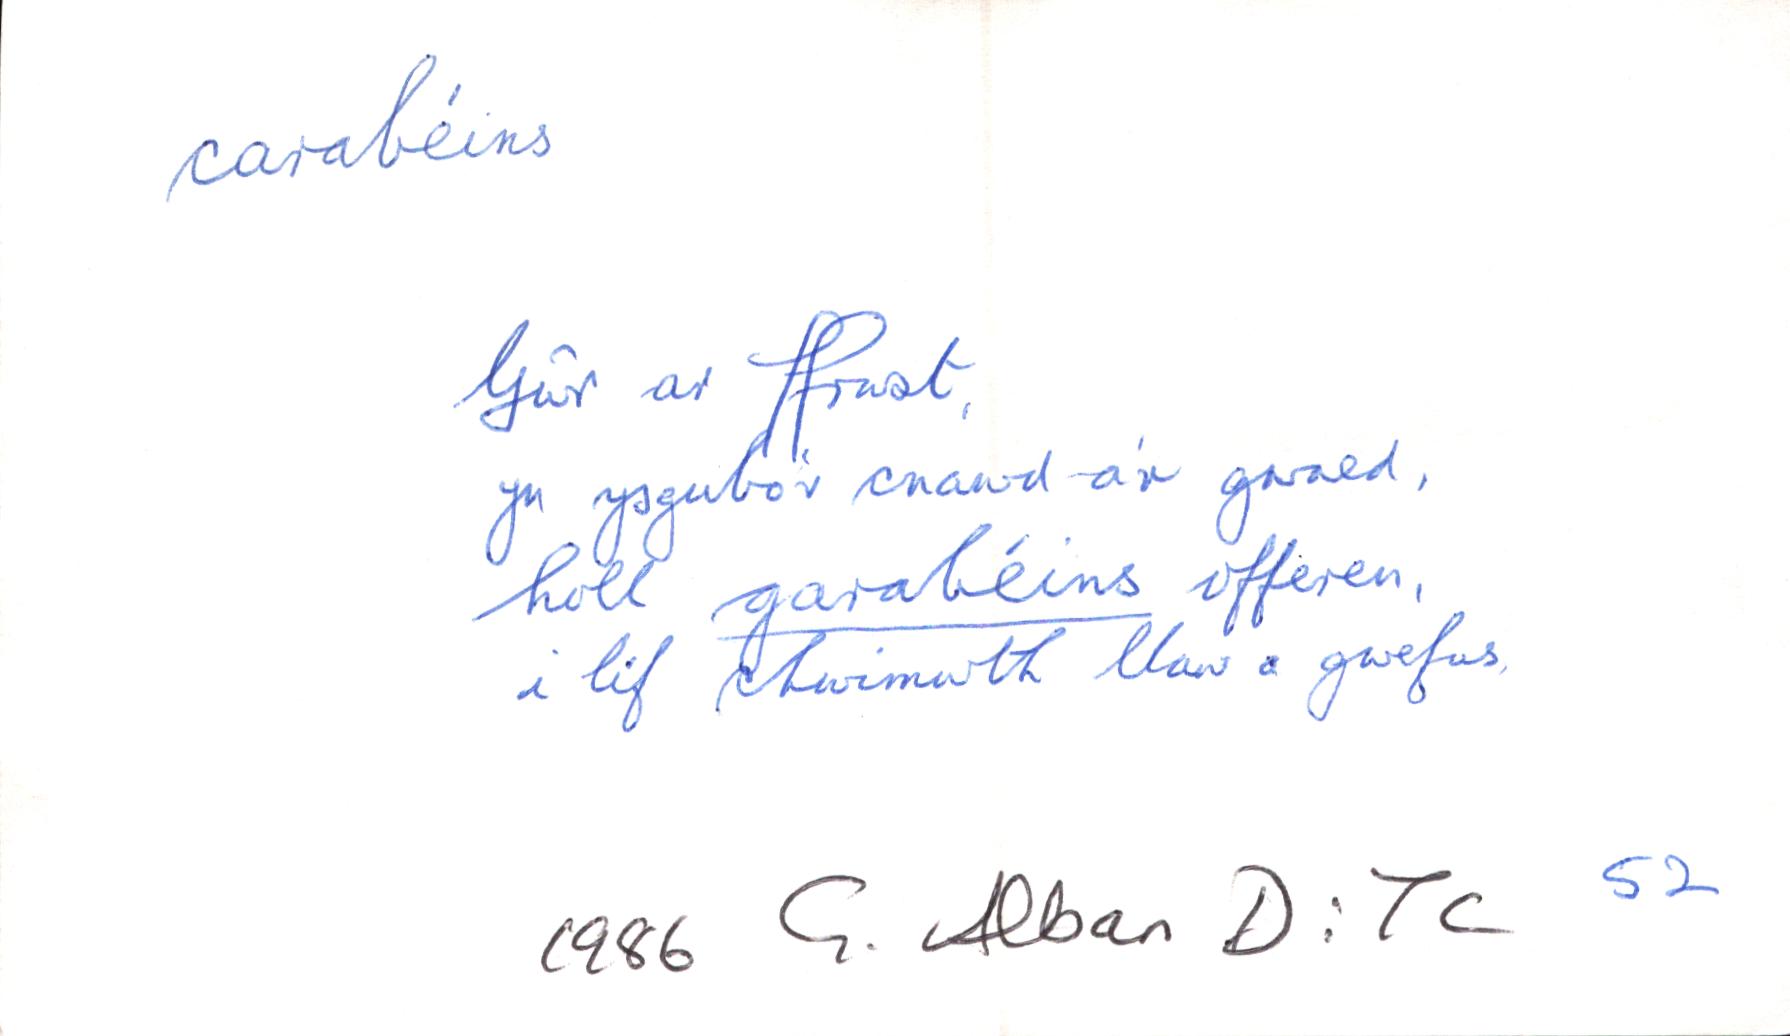 carabéins
Gŵr ar ffrwst,
yn ysgubo'r cnawd-a'r gwaed,
holl garabéins offeren,
i lif chwimwth llaw a gwefus.
1986 G. Alban D: TC 52